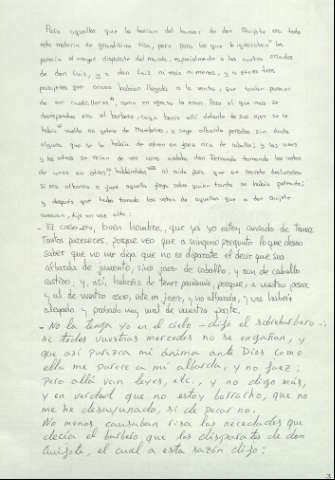 Para aquellos que la tenían del humor de don Quijote era todo
esto materia de grandísima risa, pero para los que le ignoraban les
parecía el mayor disparate del mundo, especialmente a los cuatro criados
de don Luis, y a don Luis ni más ni menos, y a otros tres
pasajeros que acaso habían llegado a la venta, que tenían parecer
de ser cuadrilleros, como en efecto lo eran. Pero el que más se
desesperaba era el barbero, cuya bacía allí delante de sus ojos se le
había vuelto en yelmo de Mambrino, y cuya albarda pensaba sin duda
alguna que se le había de volver en jaez rico de caballo; y los unos
y los otros se reían de ver cómo andaba don Fernando tomando los votos
de unos en otros, hablándolos al oído para que en secreto declarasen
si era albarda o jaez aquella joya sobre quien tanto se había peleado;
y después que hubo tomado los votos de aquellos que a don Quijote
conocían, dijo en voz alta:
- El caso es, buen hombre, que ya yo estoy cansado de tomar
tantos pareceres, porque veo que a ninguno pregunto lo que deseo
saber que no me diga que es disparate el decir que sea
albarda de jumento, sino jaez de caballo, y aun de caballo
castizo; y, así, habréis de tener paciencia, porque, a vuestro pesar
y al de vuestro asno, este es jaez, y no albarda, y vos habéis
alegado y probado muy mal de vuestra parte.
- No la tenga yo en el cielo - dijo el sobrebarbero -
si todos vuestras mercedes no se engañan, y
que así parezca mi ánima ante Dios como
ella me parece a mí albarda, y no jaez;
Pero allá van leyes, etc., y no digo más,
y en verdad que no estoy borracho, que no
me he desayunado, si de pecar no.
No menos causaban risa las necedades que
decía el barbero que los disparates de don
Quijote, el cual a esta razón dijo: